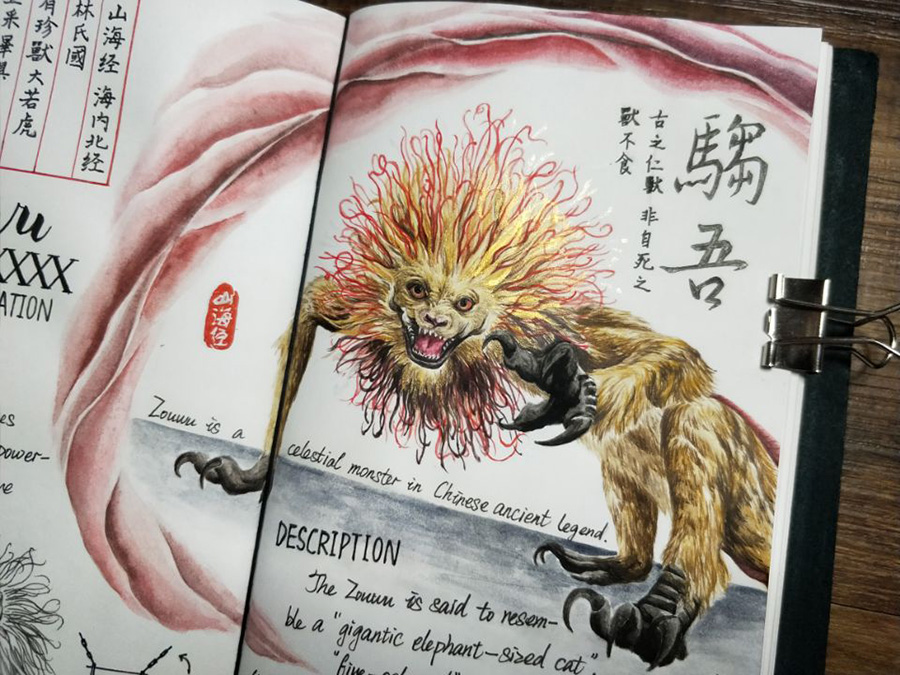 山海经 海内北经
林氏國
有珍獸大若虎
騶吾
古之仁獸 非自死之
獸不食
山海经
ru
XXXX
ATION
es
power-
Zouwu is a
celestial monster in Chinese ancient legend.
DESCRIPTION
The Zouwu is said to resem-
ble a "gigantic elephant-sized cat"